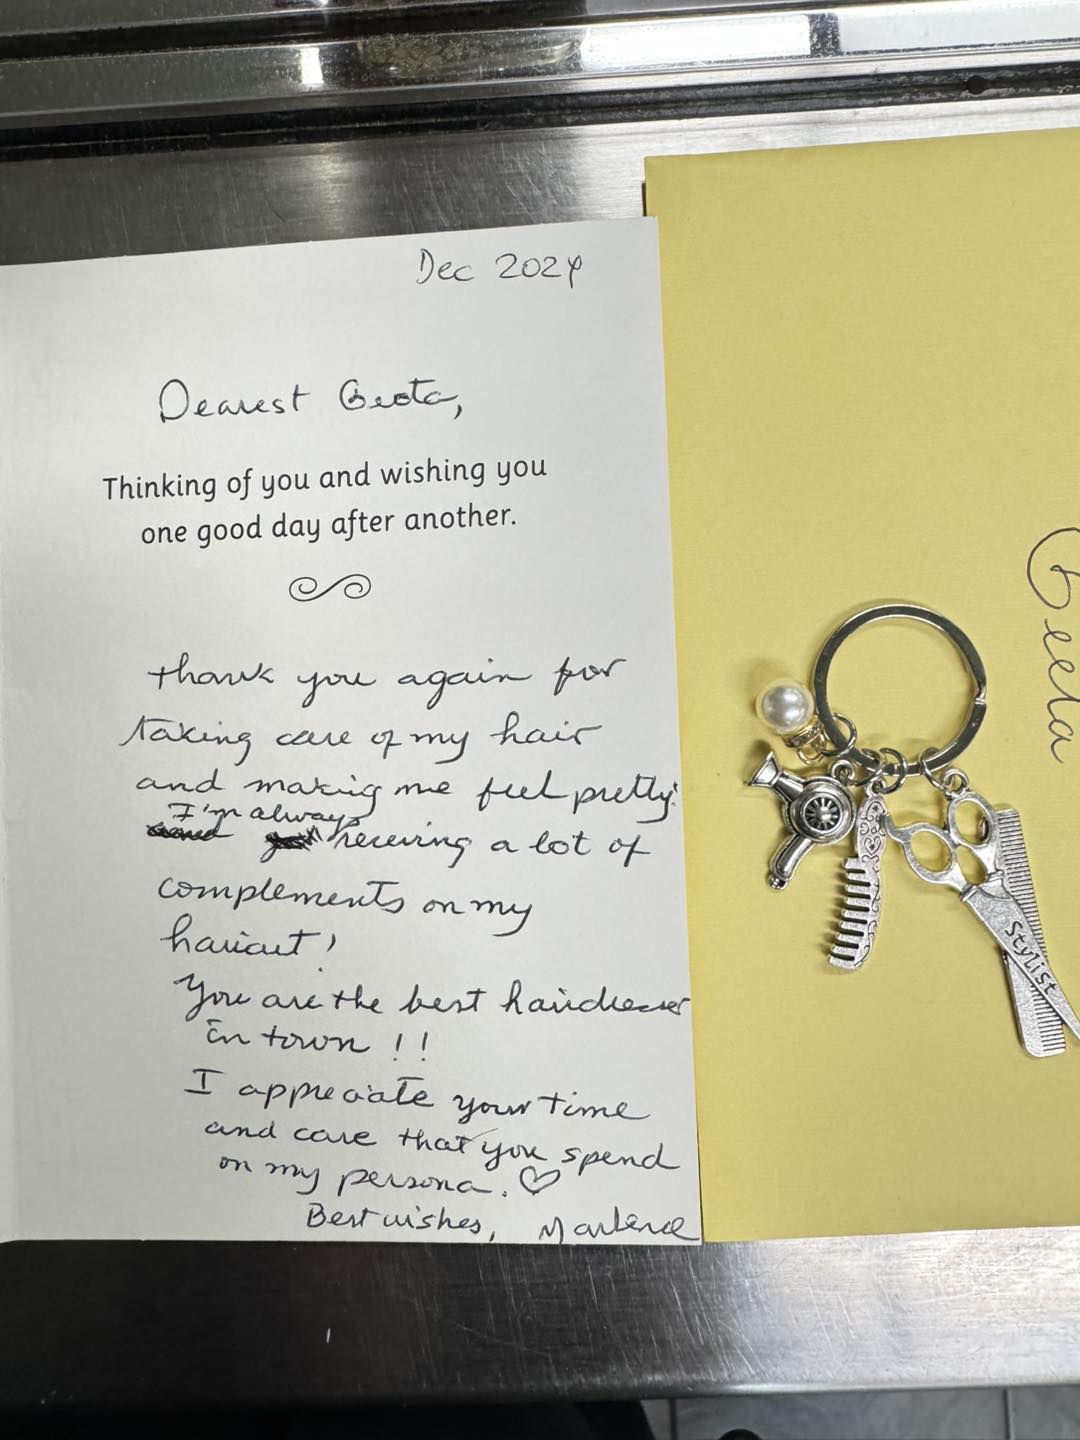 Dec 2024
Dearest Geeta,
Thinking of you and wishing you
one good day after another.
thank you again for
taking care of my hair
and making me feel pretty.
I'm always
receiving a lot of
complements on my
haircut!
You are the best hairdresser
in town !!
I appreciate your time
and care that you spend
on my persona. ♡
Best wishes, Marlene
Geeta
Stylist